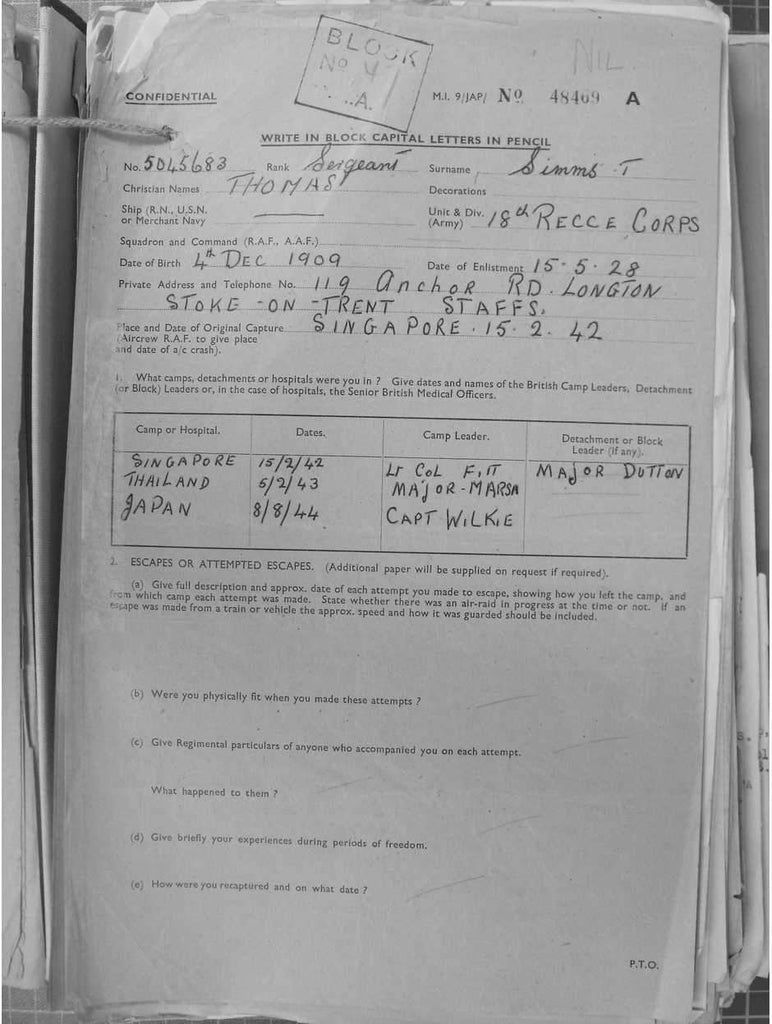 BLOCK
No 4
A.
NIL
CONFIDENTIAL
M.I. 9/JAP/ No 48469 A
WRITE IN BLOCK CAPITAL LETTERS IN PENCIL
No. 5045683 Rank Sergeant Surname Simms T
Christian Names THOMAS Decorations
Ship (R.N., U.S.N. or Merchant Navy
Unit & Div. (Army) 18th RECCE CORPS
Squadron and Command (R.A.F., A.A.F.)
Date of Birth 4th DEC 1909 Date of Enlistment 15·5·28
Private Address and Telephone No. 119 Anchor RD. LONGTON
STOKE-ON-TRENT STAFFS.
Place and Date of Original Capture SINGAPORE. 15. 2. 42
(Aircrew R.A.F. to give place
and date of a/c crash).
1. What camps, detachments or hospitals were you in ? Give dates and names of the British Camp Leaders, Detachment
(or Block) Leaders or, in the case of hospitals, the Senior British Medical Officers.
Camp or Hospital. Dates. Camp Leader. Detachment or Block Leader (if any).
SINGAPORE 15/2/42 Lt COL MAJOR DUTTON
THAILAND 5/2/43 MAJOR - MARSH
JAPAN 8/8/44 CAPT WILKIE
2. ESCAPES OR ATTEMPTED ESCAPES. (Additional paper will be supplied on request if required).
(a) Give full description and approx. date of each attempt you made to escape, showing how you left the camp, and
from which camp each attempt was made. State whether there was an air-raid in progress at the time or not. If an
escape was made from a train or vehicle the approx. speed and how it was guarded should be included.
(b) Were you physically fit when you made these attempts ?
(c) Give Regimental particulars of anyone who accompanied you on each attempt.
What happened to them ?
(d) Give briefly your experiences during periods of freedom.
(e) How were you recaptured and on what date ?
P.T.O.